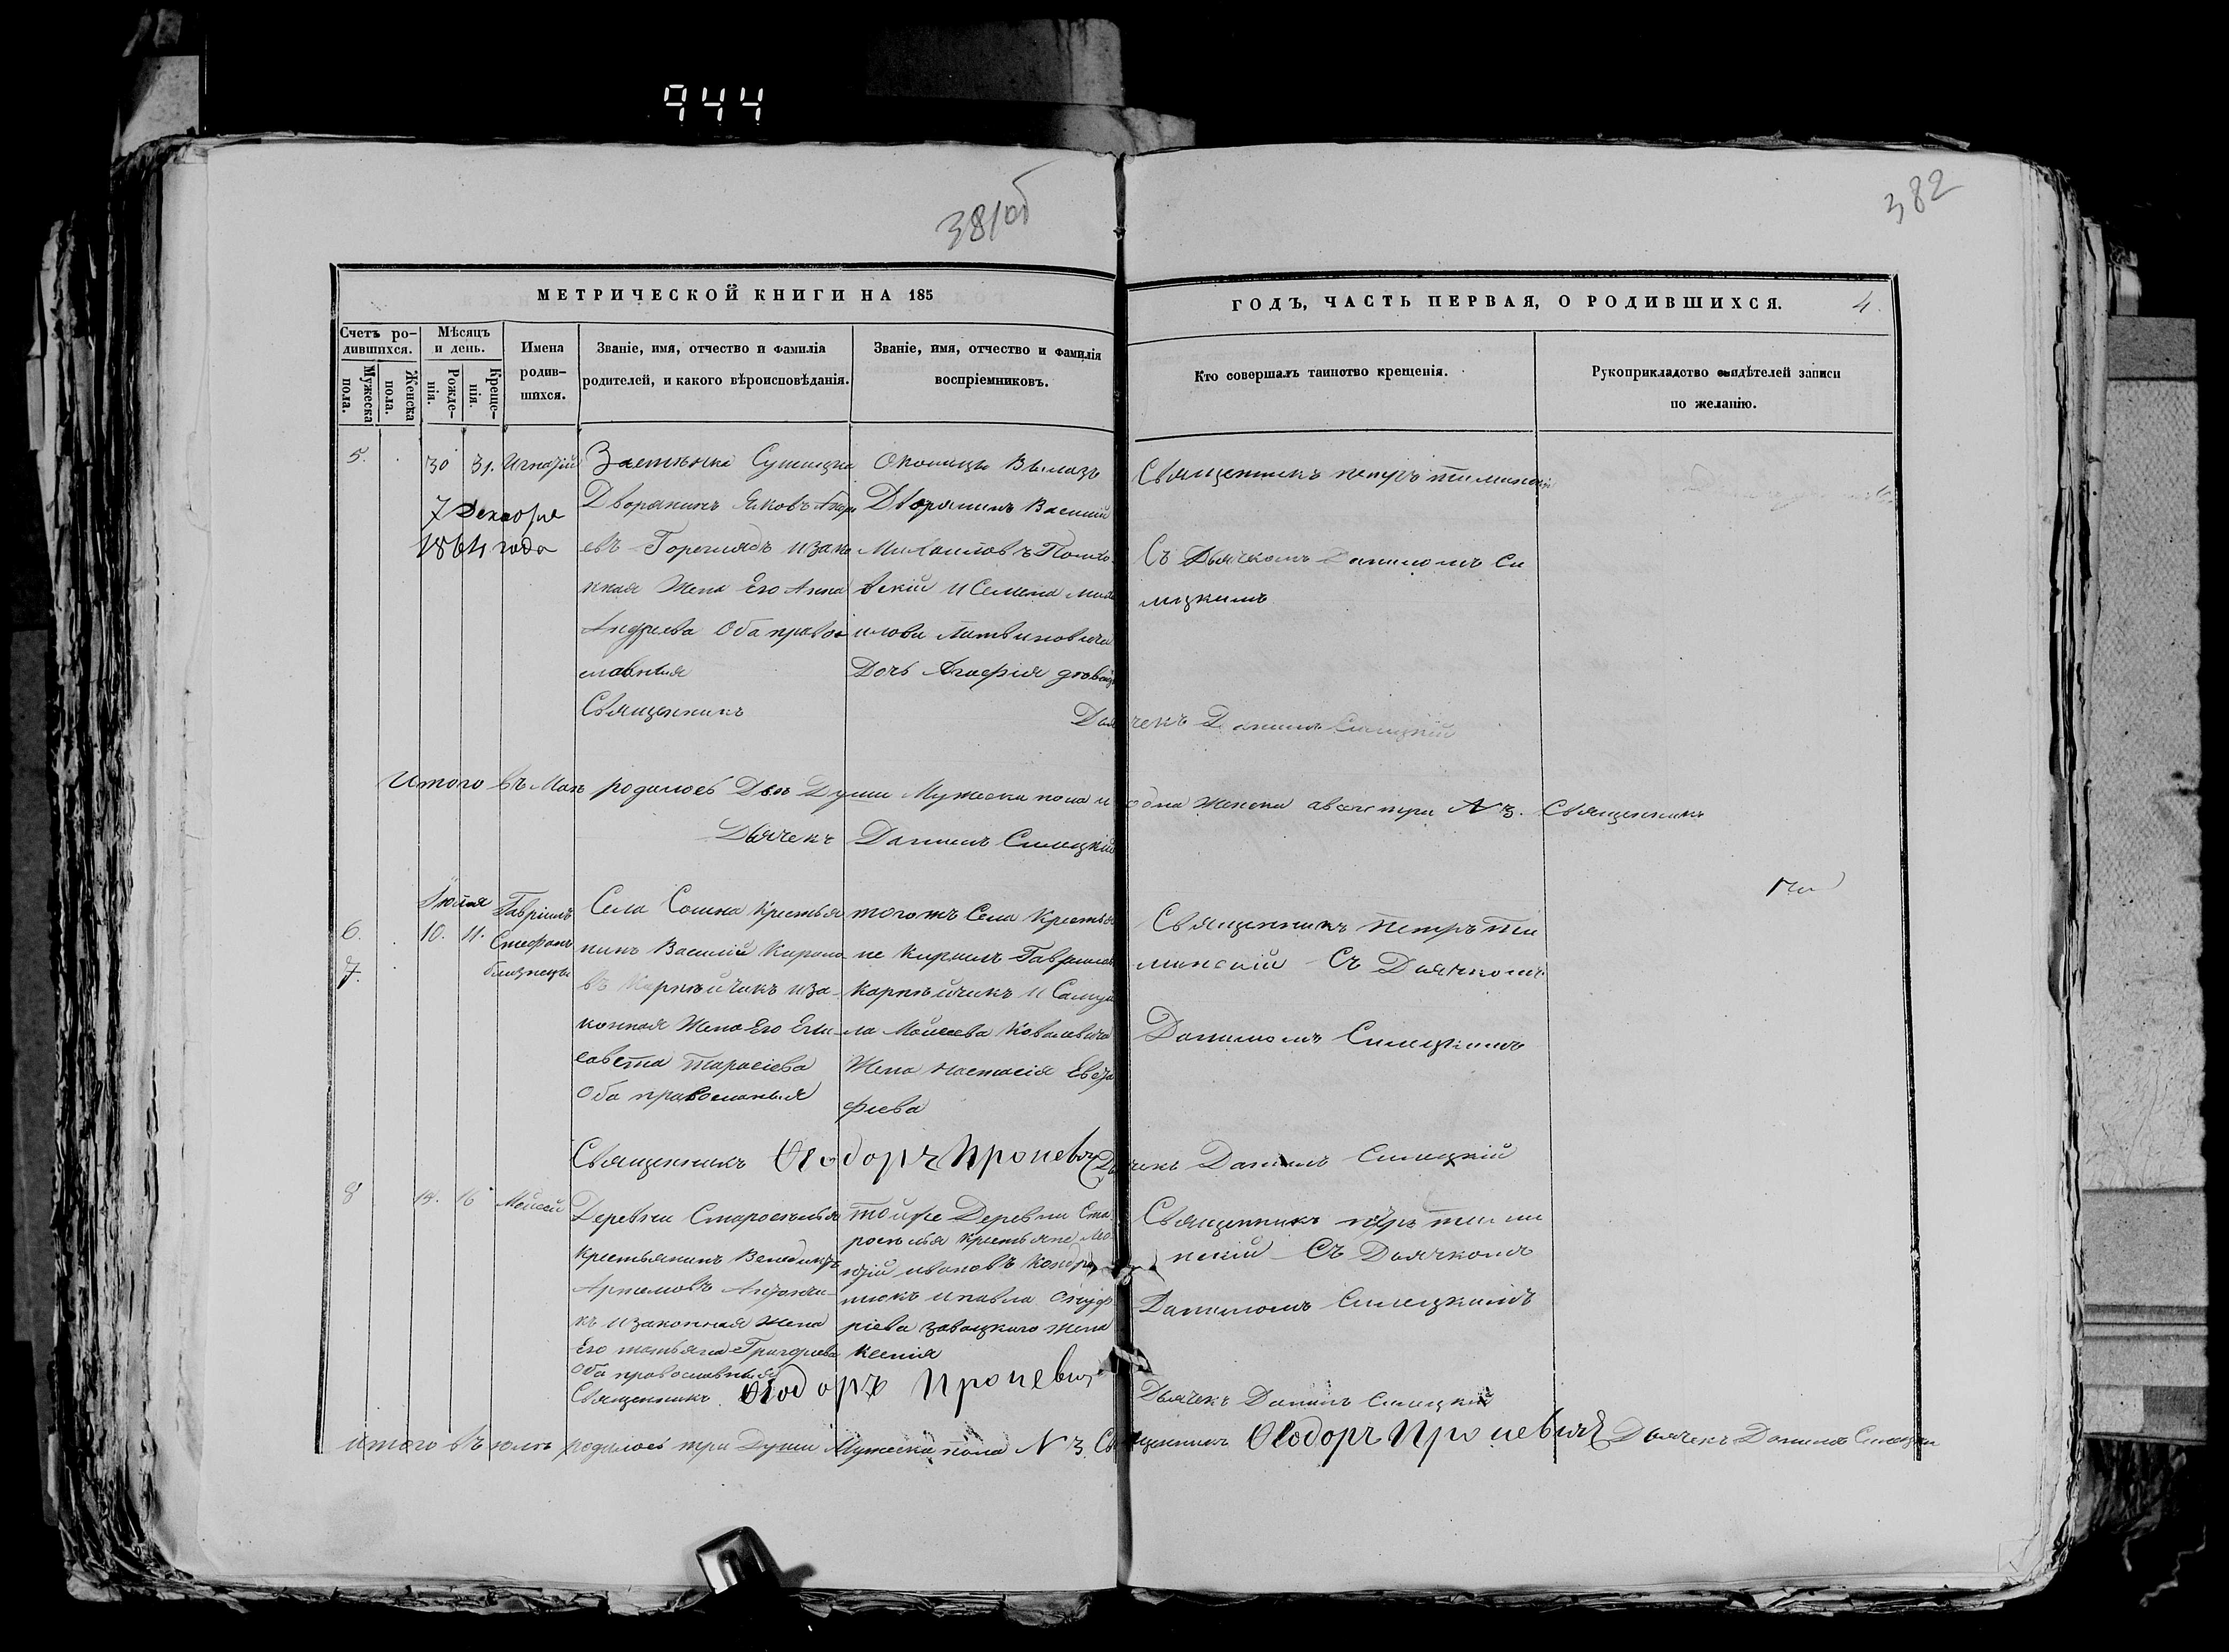 944
381об
382
МЕТРИЧЕСКОЙ КНИГИ НА 185
ГОДЪ, ЧАСТЬ ПЕРВАЯ, О РОДИВШИХСЯ.
4.
Счетъ ро-
дившихся.
Мужеска
пола.
Женска
пола.
Мѣсяцъ
и день.
Рожде-
нія.
Креще-
нія.
Имена
родив-
шихся.
Званіе, имя, отчество и фамилія
родителей, и какого вѣроисповѣданія.
Званіе, имя, отчество и фамилія
воспріемниковъ.
Кто совершалъ таинство крещенія.
Рукоприкладство свидѣтелей записи
по желанію.
5.
30
31.
Игнатій
7 Декабря
1864 года
Застѣнка
Дворянинъ Яковъ
евъ
и зако
нная Жена Его Анна
Андреева Оба право
славныя
Священникъ
Околицы
Дворянинъ Василій
Михаиловъ
вскій и Семена
илова Литвиновича
Дочь Агафія
Священникъ петръ
Съ Дьячкомъ Даниломъ Си
лицкимъ
Дьячекъ Данилъ Силицкій
Итого въ Маѣ родилось Двѣ Души Мужеска пола и одна Женска а всѣхъ три N 3. Священникъ
Дьячекъ Данилъ Силицкій
6.
7.
Іюля
10.
11.
Гавріилъ
Стефанъ
близнецы
Села Сошна Крестья
нинъ Василій Кирило
въ Карпѣйчикъ и за-
конная Жена Его Ели-
савета Тарасіева
Оба православныя
тогожъ Села Крестья
не Кирилъ Гавриловъ
Карпѣйчикъ и Самуи
ла Моисеева Ковалевича
Жена Настасія
фіева
Священникъ Петръ
минскій Съ Дьячкомъ
Даниломъ Силицкимъ
Священникъ Ѳеодоръ
Дьячекъ Данилъ Силицкій
8
14.
16
Моисей
Деревни Староселья
Крестьянинъ Венедиктъ
Артемовъ
къ и законная Жена
Его татьяна Григорьева
Оба православныя
Священникъ Ѳеодоръ
тойже Деревни Ста
роселья Крестьяне
ивановъ
нюкъ и павла Онуф
ріева Завацкаго Жена
Ксенія
Священникъ петръ
нскій Съ Дьячкомъ
Даниломъ Силицкимъ
Дьячекъ Данилъ Силицкій
Итого въ юлѣ родилось три Души Мужеска пола N 3. Священникъ Ѳеодоръ Дьячекъ Данилъ